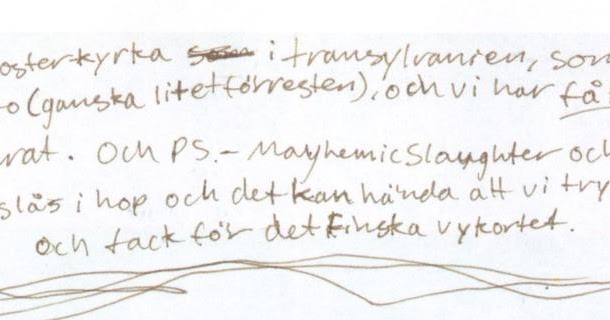 osterkyrka i transylvanien, som
o (ganska litet förresten), och vi har få
rat. Och PS. - Mayhemic Slaughter och
slås i hop och det kan hända att vi try
och tack för det Finska vykortet.